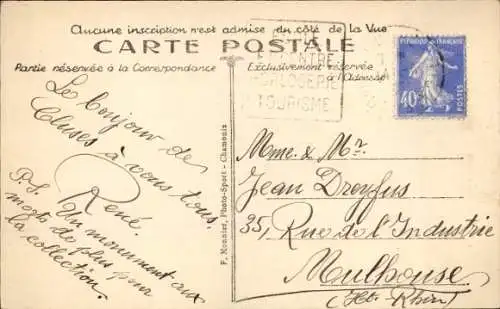 Aucune inscription n'est admise du côté de la Vue
CARTE POSTALE
Partie réservée à la Correspondance
Exclusivement réservée
à l'Adresse
HORLOGERIE
TOURISME
REPUBLIQUE FRANÇAISE
40c
POSTES
Le bonjour de
Cluses à vous tous.
René.
P.S. Un monument aux
morts de plus pour
la collection.
F. Monnier, Photo-Sport - Chamonix
Mme. & Mr.
Jean Dreyfus
35, Rue de l'Industrie
Mulhouse
(Ht. Rhin)